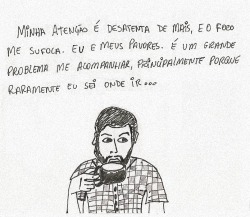 MINHA ATENÇÃO É DESATENTA DE MAIS, E O FOCO
ME SUFOCA. EU E MEUS PAVORES. É UM GRANDE
PROBLEMA ME ACOMPANHAR, PRINCIPALMENTE PORQUE
RARAMENTE EU SEI ONDE IR...